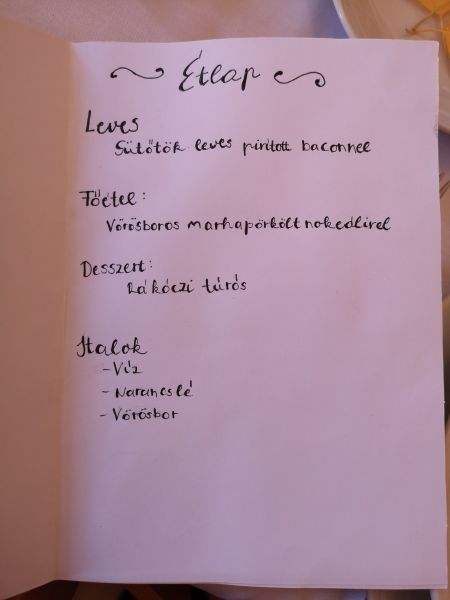 Étlap
Leves
Sütőtök leves pirított baconnel
Főétel:
Vörösboros marhapörkölt nokedlivel
Desszert:
Rákóczi túrós
Italok
- Víz
- Narancslé
- Vörösbor